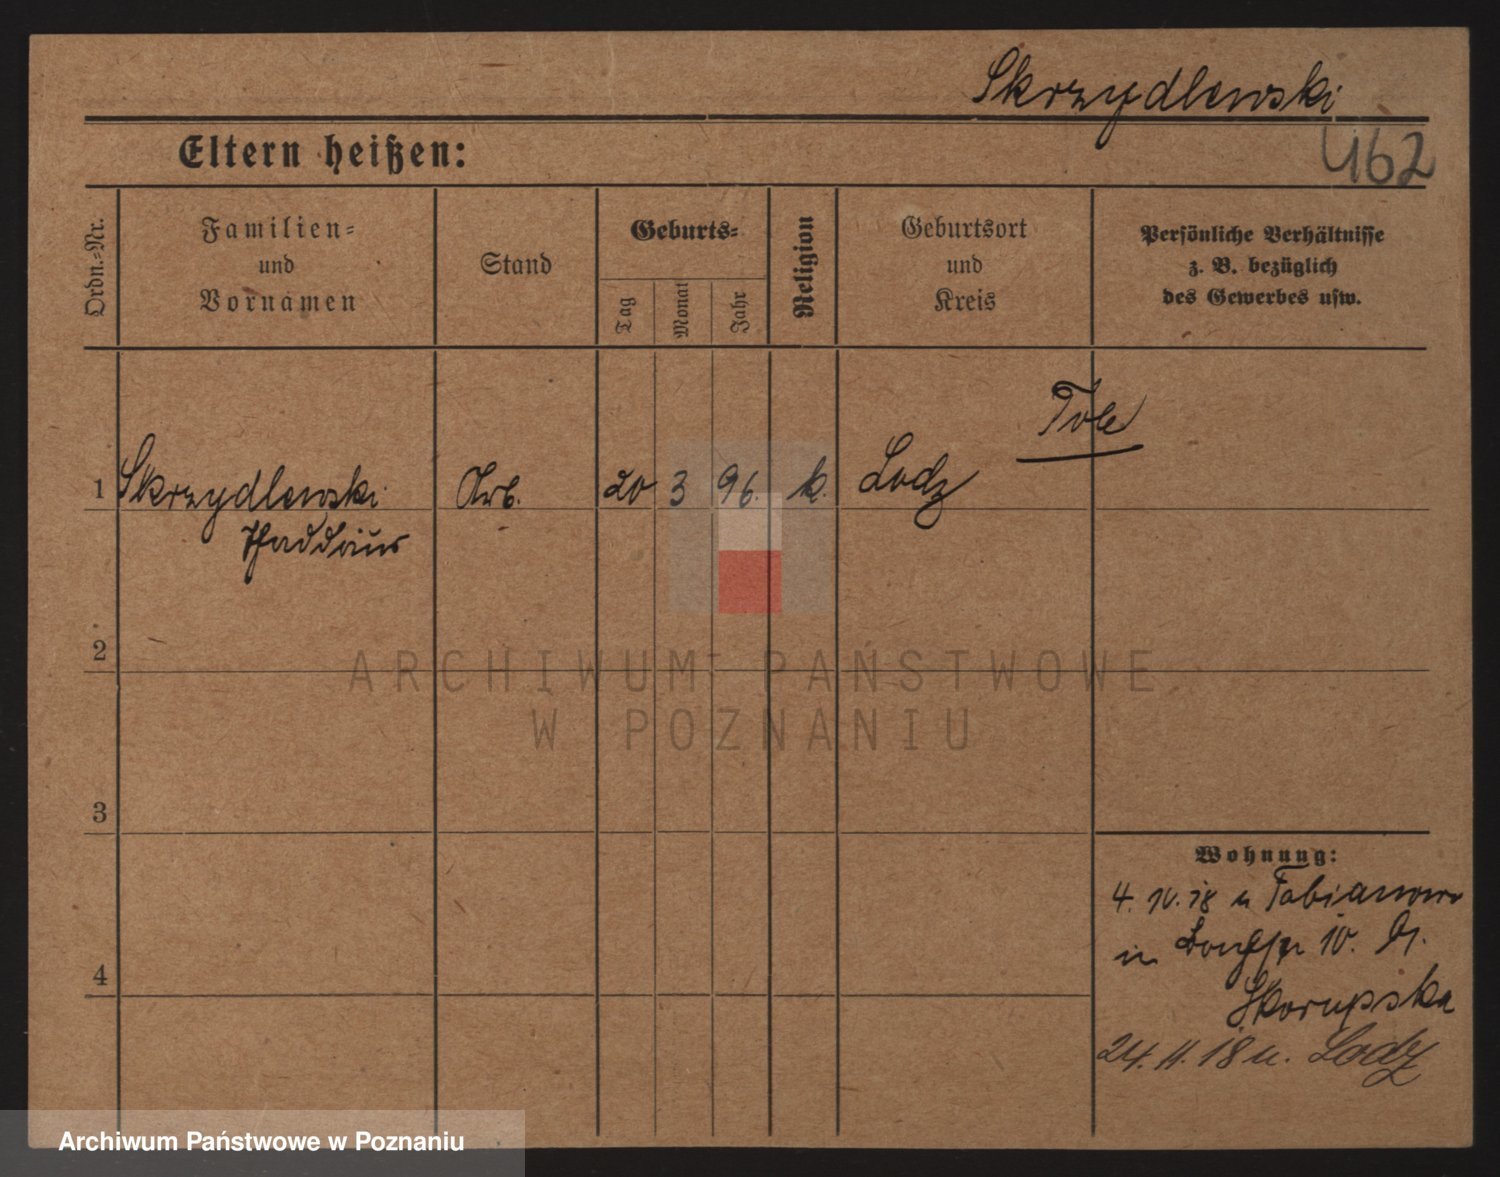 Skrzydlewski
462
Eltern heißen:
Ordn.-Nr.
Familien- und Vornamen
Stand
Geburts-
Tag
Monat
Jahr
Religion
Geburtsort und Kreis
Persönliche Verhältnisse
z. B. bezüglich
des Gewerbes usw.
Pole
1 Skrzydlewski Arb. 20 3 96. k. Lodz
Thaddäus
2
ARCHIWUM PAŃSTWOWE
W POZNANIU
3
Wohnung:
4. 10. 18 n Fabianowo
in 10. b.
4
Skorupska
24. 11. 18 n. Lodz
Archiwum Państwowe w Poznaniu